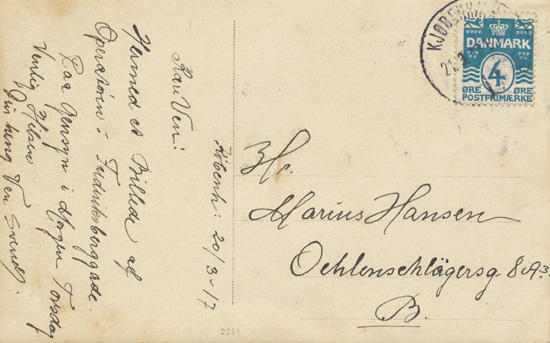 Københ: 20/3-17
Kære Ven!
Hermed et Billede af
i Frederiksberggade.
Paa Gensyn i Morgen Torsdag
Venlig Hilsen
Din Ven Svend.
KJØBENH
DANMARK
4
ØRE ØRE
POSTFRIMÆRKE
Hr.
Marius Hansen
Oehlenschlägersg 8 A 3
B.